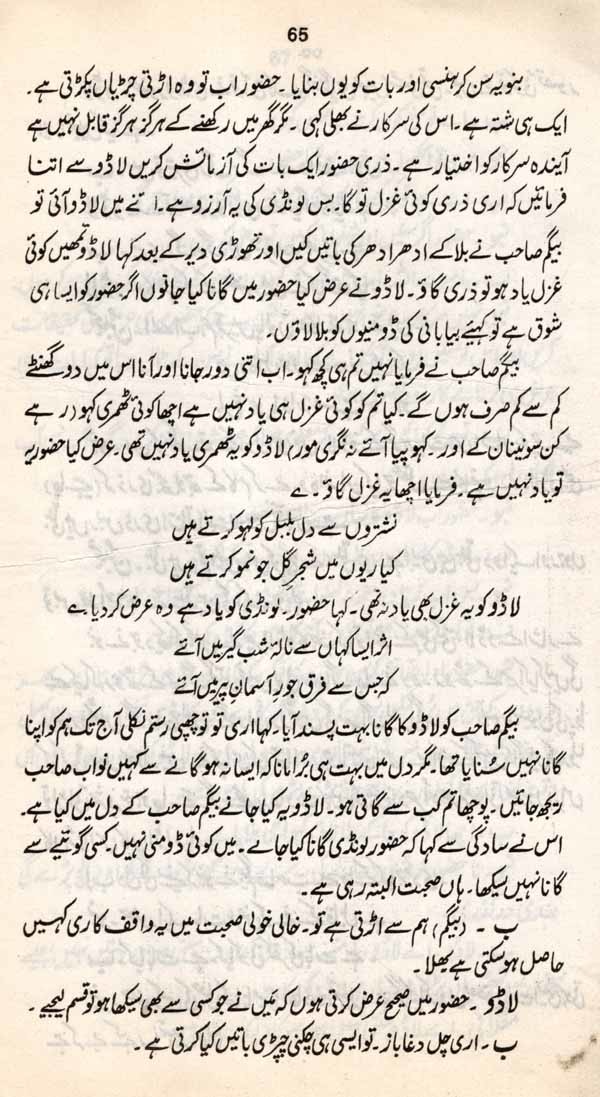 65
بنو یہ سن کر ہنسی اور بات کو یوں بنایا ۔ حضور اب تو وہ اڑتی چڑیاں پکڑتی ہے ۔
ایک ہی شتہ ہے ۔ اس کی سرکار نے بھلی کہی ۔ مگر گھر میں رکھنے کے ہرگز ہرگز قابل نہیں ہے
آیندہ سرکار کو اختیار ہے ۔ ذری حضور ایک بات کی آزمائش کریں لاڈو سے اتنا
فرمائیں کہ اری ذری کوئی غزل تو گا ۔ بس لونڈی کی یہ آرزو ہے ۔ اتنے میں لاڈو آئی تو
بیگم صاحب نے بلا کے ادھر ادھر کی باتیں کیں اور تھوڑی دیر کے بعد کہا لاڈو تمھیں کوئی
غزل یاد ہو تو ذری گاؤ ۔ لاڈو نے عرض کیا حضور میں گانا کیا جانوں اگر حضور کو ایسا ہی
شوق ہے تو کہئیے بیابانی کی ڈومنیوں کو بلا لاؤں ۔
بیگم صاحب نے فرمایا نہیں تم ہی کچھ کہو ۔ اب اتنی دور جانا اور آنا اس میں دو گھنٹے
کم سے کم صرف ہوں گے ۔ کیا تم کو کوئی غزل ہی یاد نہیں ہے اچھا کوئی ٹھمری کہو (رہے
کن سونینان کے اور ۔ کہو پیا آئے نہ نگری مور) لاڈو کو یہ ٹھمری یاد نہیں تھی ۔ عرض کیا حضور یہ
تو یاد نہیں ہے ۔ فرمایا اچھا یہ غزل گاؤ ۔ ے
نشتروں سے دل بلبل کو لہو کرتے ہیں
کیاریوں میں شجر گل جو نمو کرتے ہیں
لاڈو کو یہ غزل بھی یاد نہ تھی ۔ کہا حضور ۔ لونڈی کو یاد ہے وہ عرض کر دیا ے
اثر ایسا کہاں سے نالۂ شب گیر میں آئے
کہ جس سے فرق جورِ آسمانِ پیر میں آئے
بیگم صاحب کو لاڈو کا گانا بہت پسند آیا ۔ کہا اری تو تو چھپی رستم نکلی آج تک ہم کو اپنا
گانا نہیں سُنایا تھا ۔ مگر دل میں بہت ہی بُرا مانا کہ ایسا نہ ہو گانے سے کہیں نواب صاحب
ریجھ جائیں ۔ پوچھا تم کب سے گاتی ہو ۔ لاڈو یہ کیا جانے بیگم صاحب کے دل میں کیا ہے ۔
اس نے سادگی سے کہا کہ حضور لونڈی گانا کیا جانے ۔ میں کوئی ڈومنی نہیں ۔ کسی گویّئے سے
گانا نہیں سیکھا ۔ ہاں صحبت البتہ رہی ہے ۔
ب ۔ (بیگم) ہم سے اڑتی ہے تو ۔ خالی خولی صحبت میں یہ واقف کاری کہیں
حاصل ہو سکتی ہے بھلا ۔
لاڈو ۔ حضور میں صحیح عرض کرتی ہوں کہ مَیں نے جو کسی سے بھی سیکھا ہو تو قسم لیجیے ۔
ب ۔ اری چل دغاباز ۔ تو ایسی ہی چکنی چپڑی باتیں کیا کرتی ہے ۔